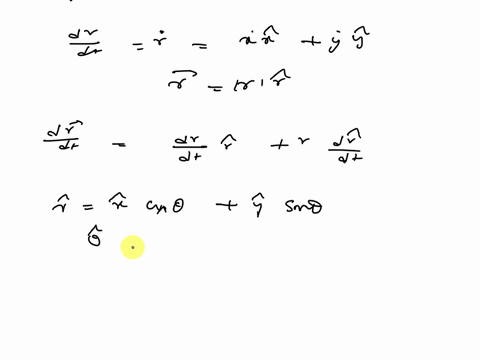 dr/dt = ṙ = ẋ x̂ + ẏ ŷ
r⃗ = |r| r̂
dr⃗/dt = dr/dt r̂ + r dr̂/dt
r̂ = x̂ cosθ + ŷ sinθ
θ̂